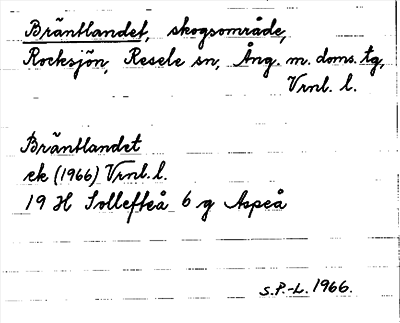 Bräntlandet, skogsområde,
Rocksjön, Resele sn, Ång. m. doms. tg,
Vrnl. l.
Bräntlandet
ek (1966) Vrnl. l.
19 H Sollefteå 6 g Aspeå
S.P.-L. 1966.